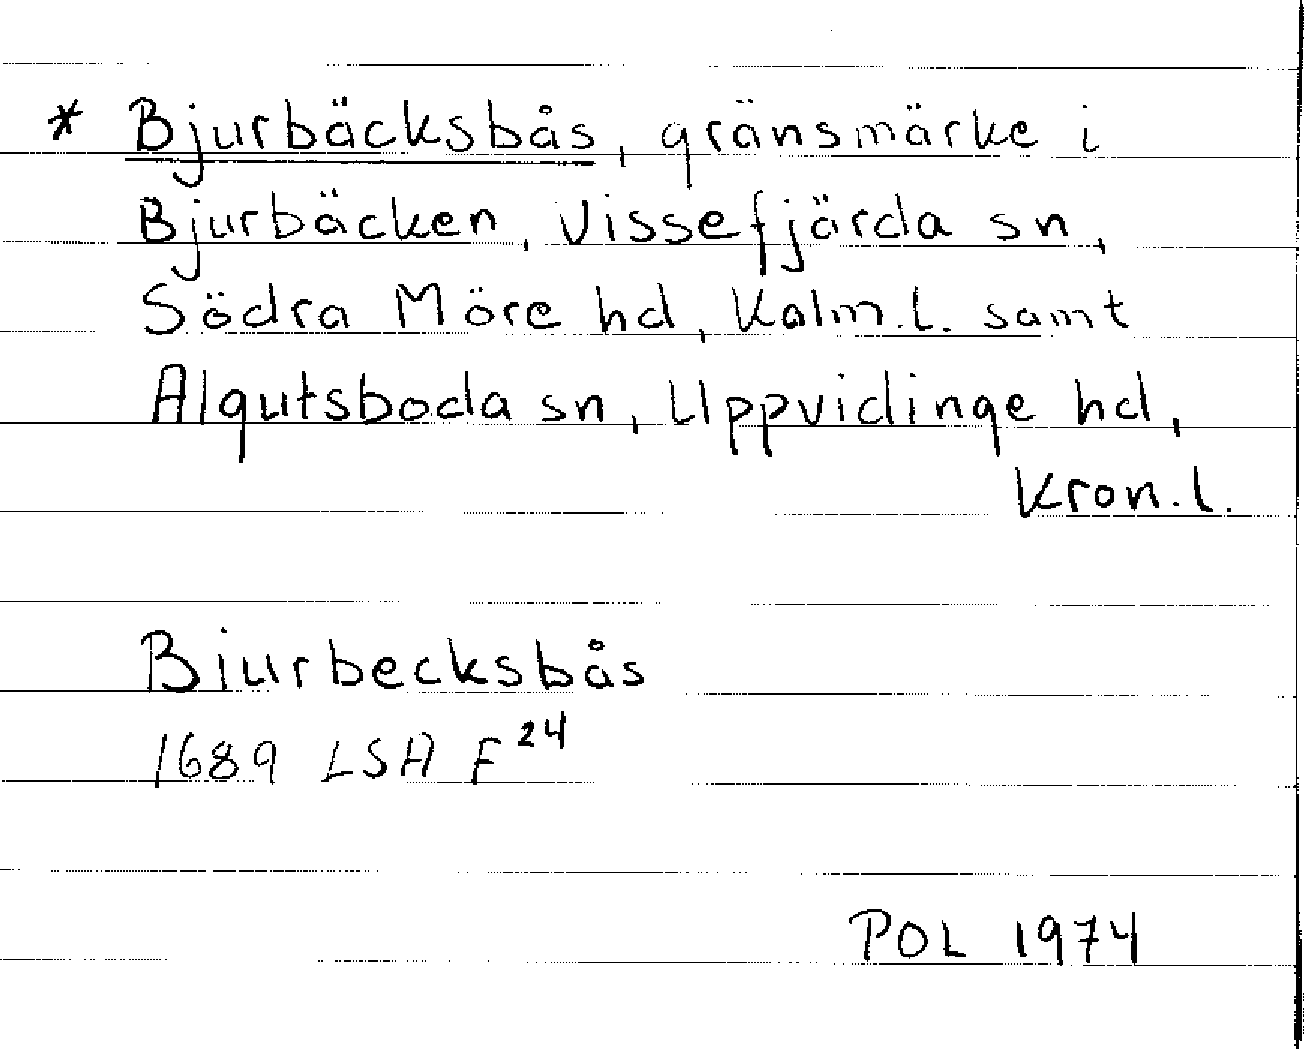 * Bjurbäcksbås, gränsmärke i
Bjurbäcken, Vissefjärda sn,
Södra Möre hd, Kalm.l. samt
Algutsboda sn, Uppvidinge hd,
Kron.l.
Biurbecksbås
1689 LSA F24
POL 1974